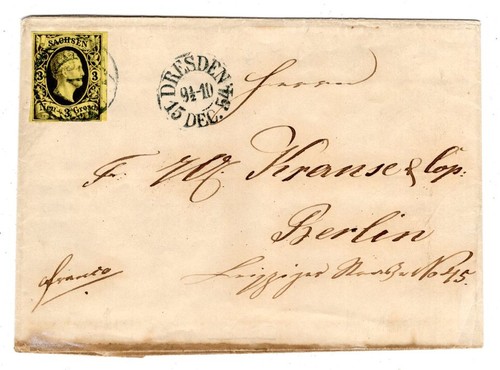 SACHSEN
3 3
Neu - 3 - Grosch
DRESDEN
9½-10
15 DEC. 54
Herrn
F. W. Krause & Cop:
Berlin
franco
Leipziger Straße No 45.